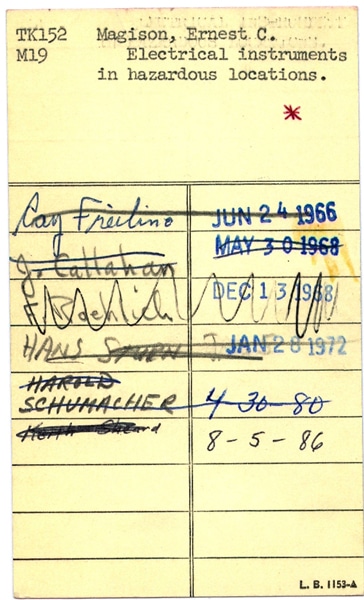 TK152 Magison, Ernest C.
M19 Electrical instruments
in hazardous locations.
*
Ray Freilino JUN 24 1966
MAY 30 1968
J. Callahan
DEC 13 1968
HANS JAN 28 1972
HAROLD
SCHUMACHER 4-30-80
Keith Sheard
8-5-86
L. B. 1153-A